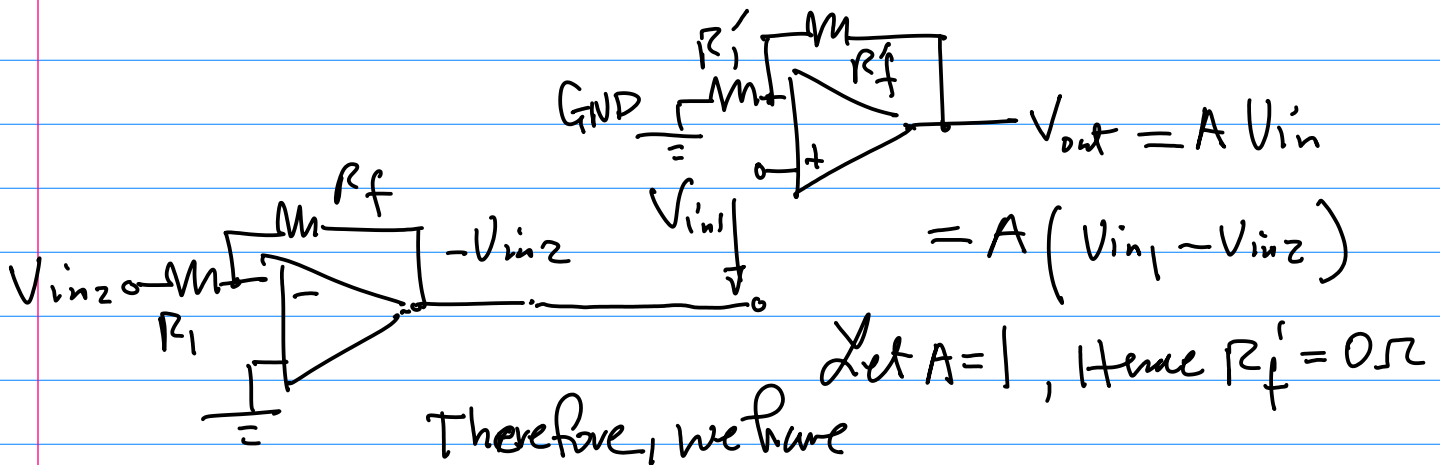 R₁′
Rf′
GND
V_out = A Vin
+
Rf
Vin1
-Vin2
= A ( Vin1 - Vin2 )
Vin2
-
R1
Let A = 1 , Hence Rf′ = 0Ω
Therefore, we have